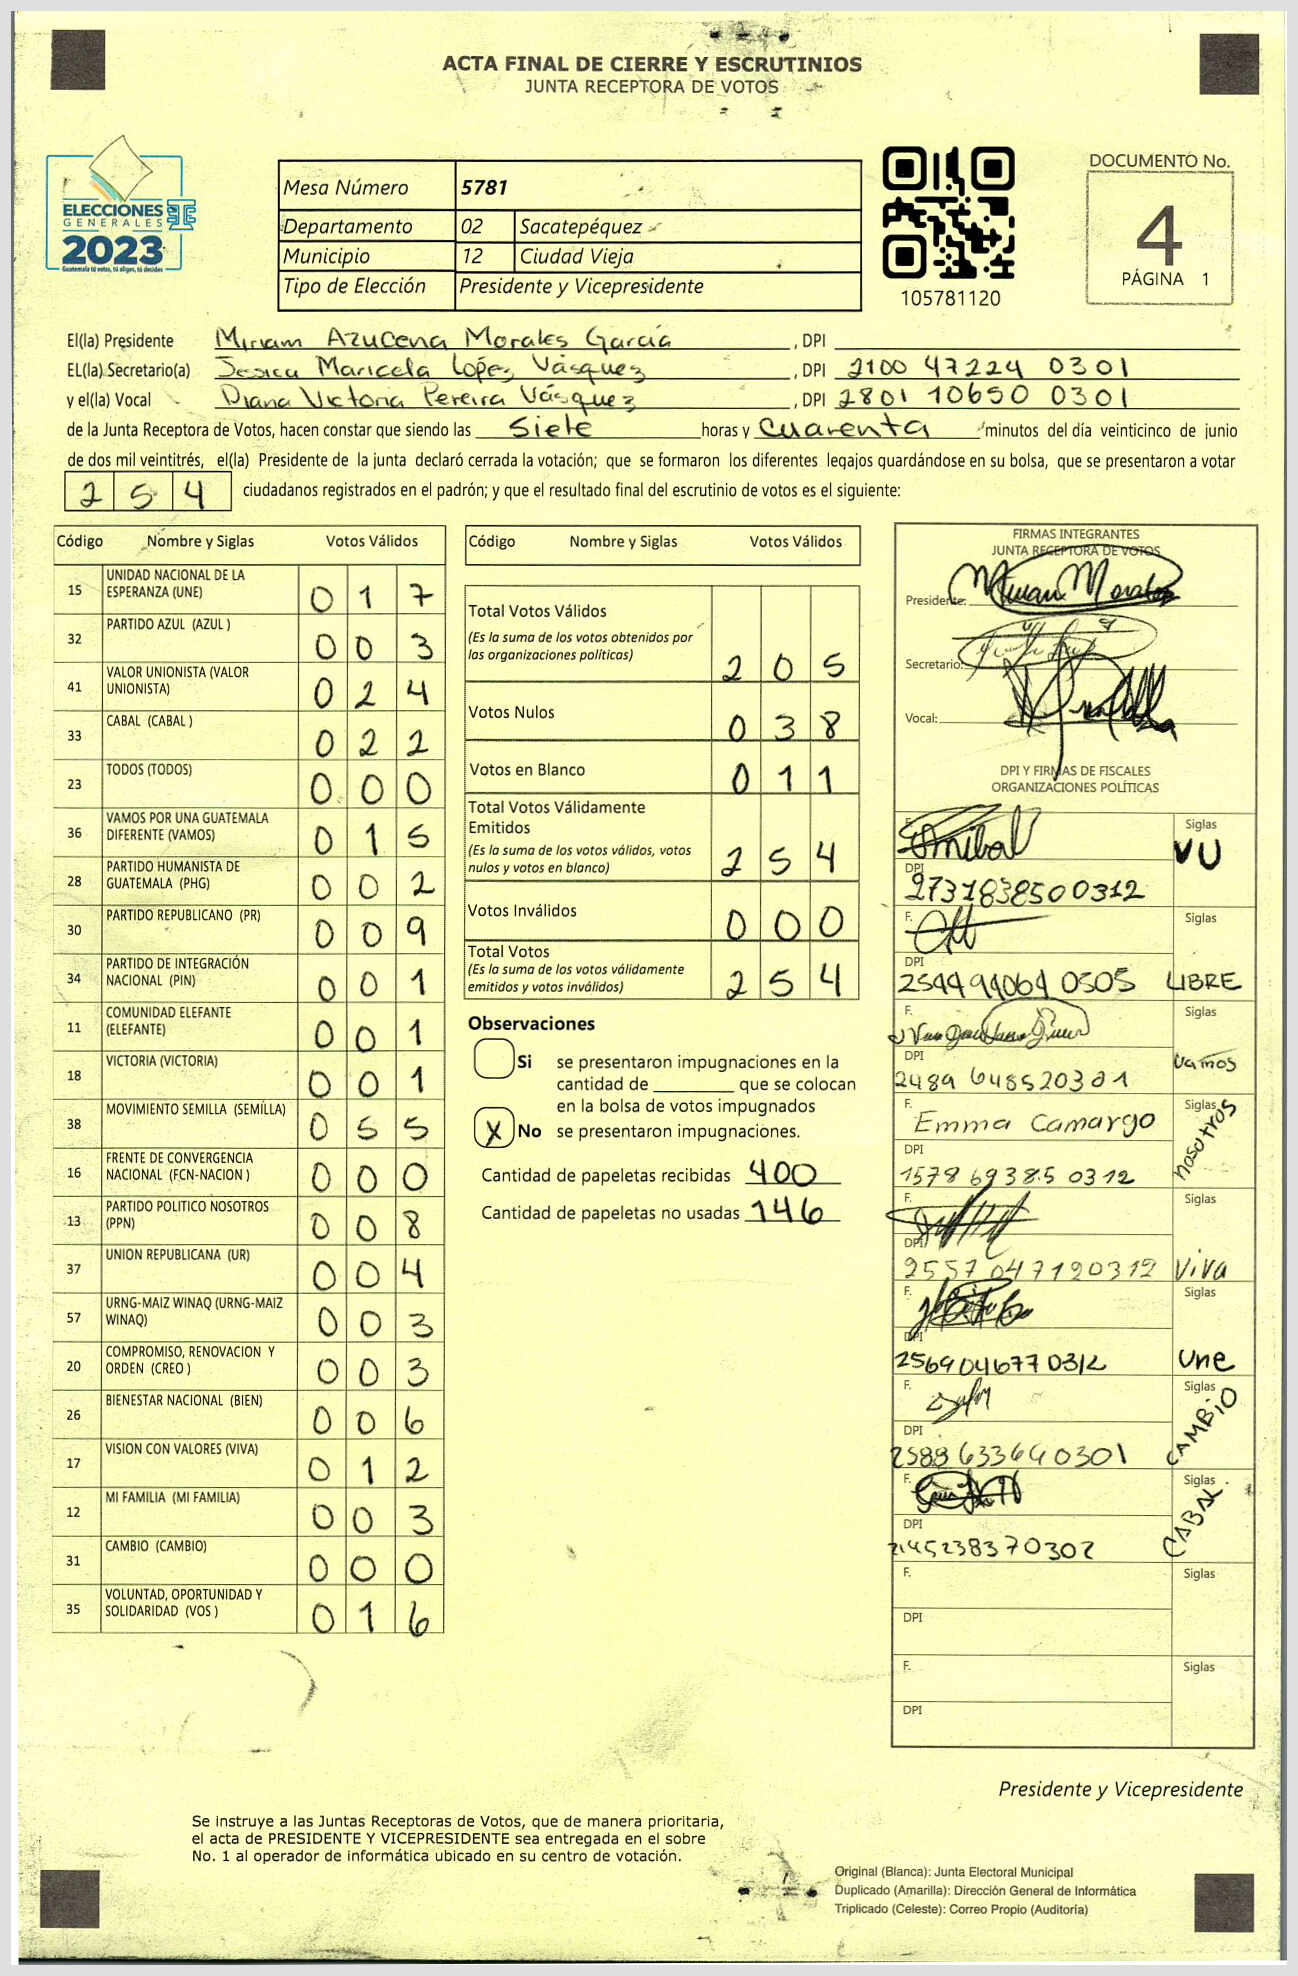 ACTA FINAL DE CIERRE Y ESCRUTINIOS
JUNTA RECEPTORA DE VOTOS
ELECCIONES
GENERALES
2023
Guatemala tú votas, tú eliges, tú decides
Mesa Número 5781
Departamento 02 Sacatepéquez
Municipio 12 Ciudad Vieja
Tipo de Elección Presidente y Vicepresidente
105781120
DOCUMENTO No.
4
PÁGINA 1
El(la) Presidente Miriam Azucena Morales García , DPI
EL(la) Secretario(a) Jesica Maricela Lopéz Vásquez , DPI 2100 47224 0301
y el(la) Vocal Diana Victoria Pereira Vásquez , DPI 2801 10650 0301
de la Junta Receptora de Votos, hacen constar que siendo las siete horas y cuarenta minutos del día veinticinco de junio
de dos mil veintitrés, el(la) Presidente de la junta declaró cerrada la votación; que se formaron los diferentes legajos guardándose en su bolsa, que se presentaron a votar
2 5 4 ciudadanos registrados en el padrón; y que el resultado final del escrutinio de votos es el siguiente:
Código Nombre y Siglas Votos Válidos
15 UNIDAD NACIONAL DE LA
ESPERANZA (UNE) 0 1 7
32 PARTIDO AZUL (AZUL ) 0 0 3
41 VALOR UNIONISTA (VALOR
UNIONISTA) 0 2 4
33 CABAL (CABAL ) 0 2 2
23 TODOS (TODOS) 0 0 0
36 VAMOS POR UNA GUATEMALA
DIFERENTE (VAMOS) 0 1 5
28 PARTIDO HUMANISTA DE
GUATEMALA (PHG) 0 0 2
30 PARTIDO REPUBLICANO (PR) 0 0 9
34 PARTIDO DE INTEGRACIÓN
NACIONAL (PIN) 0 0 1
11 COMUNIDAD ELEFANTE
(ELEFANTE) 0 0 1
18 VICTORIA (VICTORIA) 0 0 1
38 MOVIMIENTO SEMILLA (SEMILLA) 0 5 5
16 FRENTE DE CONVERGENCIA
NACIONAL (FCN-NACION ) 0 0 0
13 PARTIDO POLITICO NOSOTROS
(PPN) 0 0 8
37 UNION REPUBLICANA (UR) 0 0 4
57 URNG-MAIZ WINAQ (URNG-MAIZ
WINAQ) 0 0 3
20 COMPROMISO, RENOVACION Y
ORDEN (CREO ) 0 0 3
26 BIENESTAR NACIONAL (BIEN) 0 0 6
17 VISION CON VALORES (VIVA) 0 1 2
12 MI FAMILIA (MI FAMILIA) 0 0 3
31 CAMBIO (CAMBIO) 0 0 0
35 VOLUNTAD, OPORTUNIDAD Y
SOLIDARIDAD (VOS ) 0 1 6
Código Nombre y Siglas Votos Válidos
Total Votos Válidos
(Es la suma de los votos obtenidos por
las organizaciones políticas) 2 0 5
Votos Nulos 0 3 8
Votos en Blanco 0 1 1
Total Votos Válidamente
Emitidos
(Es la suma de los votos válidos, votos
nulos y votos en blanco) 2 5 4
Votos Inválidos 0 0 0
Total Votos
(Es la suma de los votos válidamente
emitidos y votos inválidos) 2 5 4
Observaciones
Si se presentaron impugnaciones en la
cantidad de que se colocan
en la bolsa de votos impugnados
X No se presentaron impugnaciones.
Cantidad de papeletas recibidas 400
Cantidad de papeletas no usadas 146
FIRMAS INTEGRANTES
JUNTA RECEPTORA DE VOTOS
Presidente:
Secretario:
Vocal:
DPI Y FIRMAS DE FISCALES
ORGANIZACIONES POLÍTICAS
F. Anibal Siglas
VU
DPI
2731838500312
F. Siglas
DPI
2549494064 0505 LIBRE
F. Siglas
vamos
DPI
2489 648520301
F. Emma Camargo Siglas
nosotros
DPI
1578 69385 0312
F. Siglas
DPI
2557 047120312 viva
F. Siglas
DPI
2569046770312 une
F. Siglas
CAMBIO
DPI
2588633640301
F. Siglas
CABAL
DPI
2145238370302
F. Siglas
DPI
F. Siglas
DPI
Presidente y Vicepresidente
Se instruye a las Juntas Receptoras de Votos, que de manera prioritaria,
el acta de PRESIDENTE Y VICEPRESIDENTE sea entregada en el sobre
No. 1 al operador de informática ubicado en su centro de votación.
Original (Blanca): Junta Electoral Municipal
Duplicado (Amarilla): Dirección General de Informática
Triplicado (Celeste): Correo Propio (Auditoría)